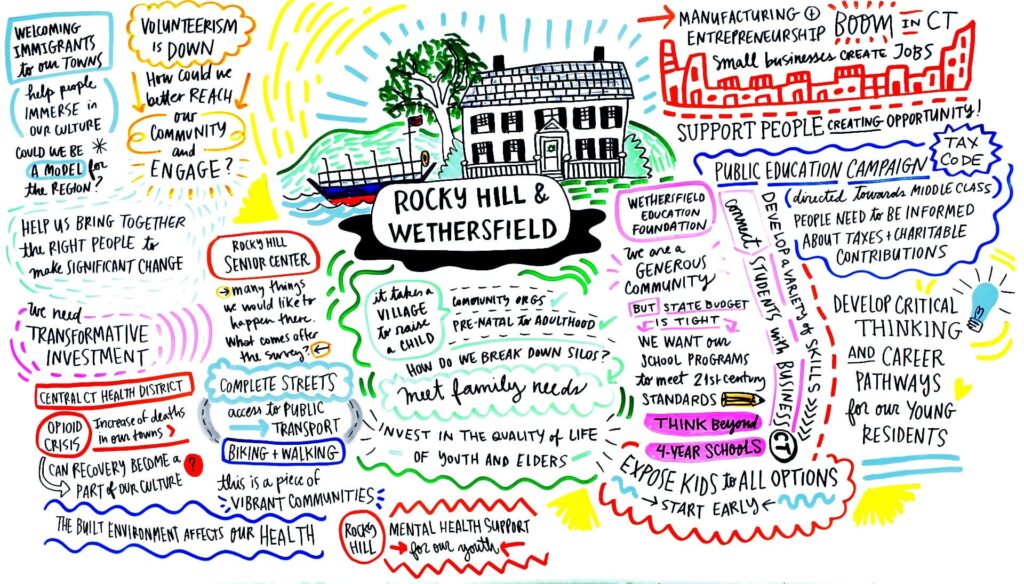 WELCOMING
IMMIGRANTS
to OUR TOWNS
help people
IMMERSE in
OUR CULTURE
COULD WE BE
A MODEL for
the REGION?
VOLUNTEERISM
is DOWN
How could we
better REACH
our
COMMUNITY
and
ENGAGE?
HELP US BRING TOGETHER
the RIGHT PEOPLE to
make SIGNIFICANT CHANGE
We need
TRANSFORMATIVE
INVESTMENT
ROCKY HILL
SENIOR CENTER
many things
we would like to
happen there.
What comes after
the survey?
CENTRAL CT HEALTH DISTRICT
OPIOID
CRISIS
Increase of deaths
in our towns
CAN RECOVERY BECOME a
PART of OUR CULTURE
?
COMPLETE STREETS
access to PUBLIC
TRANSPORT
BIKING + WALKING
this is a piece of
VIBRANT COMMUNITIES
THE BUILT ENVIRONMENT AFFECTS OUR HEALTH
ROCKY HILL &
WETHERSFIELD
it takes a
VILLAGE
to raise
a CHILD
COMMUNITY ORGS
PRE-NATAL to ADULTHOOD
HOW DO WE BREAK DOWN SILOS?
meet family needs
INVEST IN THE QUALITY of LIFE
OF YOUTH AND ELDERS
ROCKY
HILL
MENTAL HEALTH SUPPORT
for our youth
MANUFACTURING +
ENTREPRENEURSHIP BOOM IN CT
Small businesses CREATE JOBS
SUPPORT PEOPLE CREATING OPPORTUNITY!
WETHERSFIELD
EDUCATION
FOUNDATION
We are a
GENEROUS
COMMUNITY
BUT STATE BUDGET
IS TIGHT
WE WANT OUR
SCHOOL PROGRAMS
to MEET 21st CENTURY
STANDARDS
THINK BEYOND
4-YEAR SCHOOLS
DEVELOP A VARIETY of SKILLS
CONNECT STUDENTS with BUSINESS
CT
EXPOSE KIDS to ALL OPTIONS
START EARLY
PUBLIC EDUCATION CAMPAIGN
TAX
CODE
directed towards MIDDLE CLASS
PEOPLE NEED to BE INFORMED
ABOUT TAXES + CHARITABLE
CONTRIBUTIONS
DEVELOP CRITICAL
THINKING
AND CAREER
PATHWAYS
for OUR YOUNG
RESIDENTS